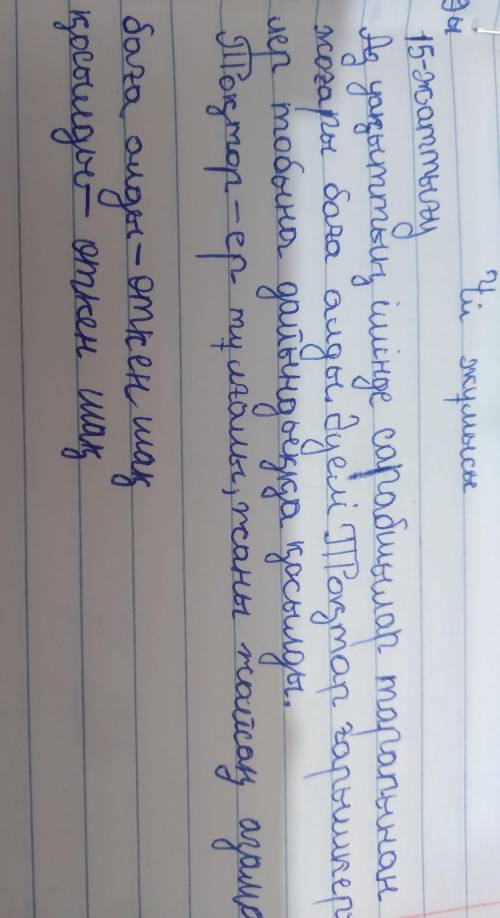 Үй жұмысы
15-жаттығу
Аз уақыттың ішінде сарабшылар тарапынан
жоғары баға алды. Әуелі Тоқтар ғарышкер
лер тобына дайындыққа қосылды.
Тоқтар-ер тұлғалы, жаны жайсаң азама
баға алды-өткен шақ
қосылды-өткен шақ